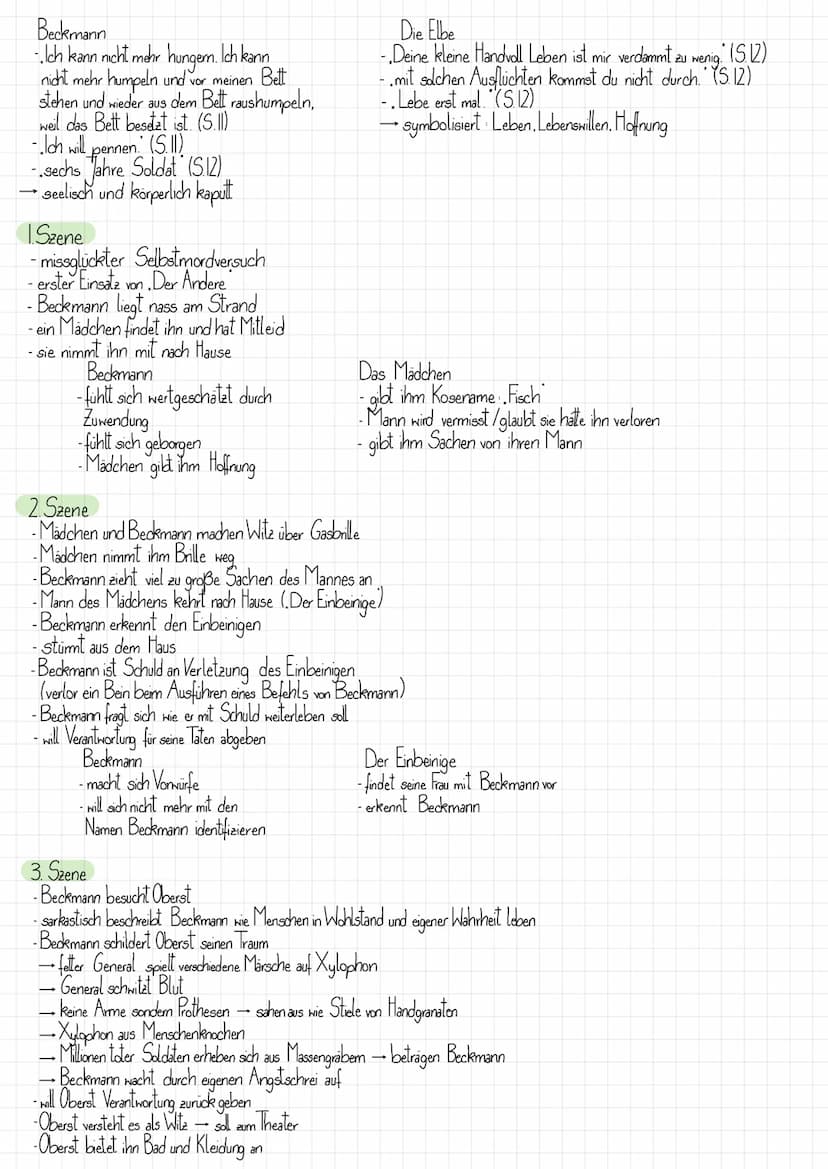 Beckmann
- „Ich kann nicht mehr hungern. Ich kann
nicht mehr humpeln und vor meinen Bett
stehen und wieder aus dem Bett raushumpeln,
weil das Bett besetzt ist. (S.11)
- „Ich will pennen." (S.11)
- „sechs Jahre Soldat" (S.12)
→ seelisch und körperlich kaputt
Die Elbe
- „Deine kleine Handvoll Leben ist mir verdammt zu wenig." (S.12)
- „mit solchen Ausflüchten kommst du nicht durch." (S.12)
- „Lebe erst mal." (S.12)
→ symbolisiert: Leben, Lebenswillen, Hoffnung
1. Szene
- missglückter Selbstmordversuch
- erster Einsatz von „Der Andere"
- Beckmann liegt nass am Strand
- ein Mädchen findet ihn und hat Mitleid
- sie nimmt ihn mit nach Hause
Beckmann
- fühlt sich wertgeschätzt durch
Zuwendung
- fühlt sich geborgen
- Mädchen gibt ihm Hoffnung
Das Mädchen
- gibt ihm Kosename: „Fisch"
- Mann wird vermisst / glaubt sie hätte ihn verloren
- gibt ihm Sachen von ihren Mann
2. Szene
- Mädchen und Beckmann machen Witz über Gasbrille
- Mädchen nimmt ihm Brille weg
- Beckmann zieht viel zu große Sachen des Mannes an
- Mann des Mädchens kehrt nach Hause („Der Einbeinige")
- Beckmann erkennt den Einbeinigen
- stürmt aus dem Haus
- Beckmann ist Schuld an Verletzung des Einbeinigen
(verlor ein Bein beim Ausführen eines Befehls von Beckmann)
- Beckmann fragt sich wie er mit Schuld weiterleben soll
- will Verantwortung für seine Taten abgeben
Beckmann
- macht sich Vorwürfe
- will sich nicht mehr mit den
Namen Beckmann identifizieren
Der Einbeinige
- findet seine Frau mit Beckmann vor
- erkennt Beckmann
3. Szene
- Beckmann besucht Oberst
- sarkastisch beschreibt Beckmann wie Menschen in Wohlstand und eigener Wahrheit leben
- Beckmann schildert Oberst seinen Traum
→ fetter General spielt verschiedene Märsche auf Xylophon
→ General schwitzt Blut
→ keine Arme sondern Prothesen → sahen aus wie Stiele von Handgranaten
→ Xylophon aus Menschenknochen
→ Millionen toter Soldaten erheben sich aus Massengräbern → beträgen Beckmann
→ Beckmann wacht durch eigenen Angstschrei auf
- will Oberst Verantwortung zurück geben
- Oberst versteht es als Witz → soll zum Theater
- Oberst bietet ihn Bad und Kleidung an